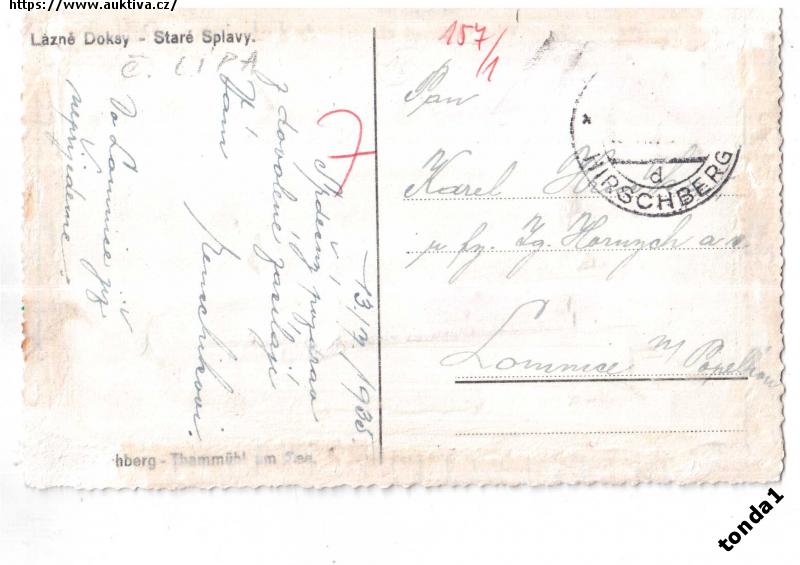 https://www.auktiva.cz/
Lázně Doksy - Staré Splavy.
Č. LÍPA
157/1
13./ 1935.
Srdečný pozdrav
z dovolené zasílají
Vám
Do Lomnice již
nepřijedeme.
Pan
Karel
u fy. Ig.
Lomnice n/ Popelkou
d
HIRSCHBERG
hberg - Thammühl am See.
tonda1